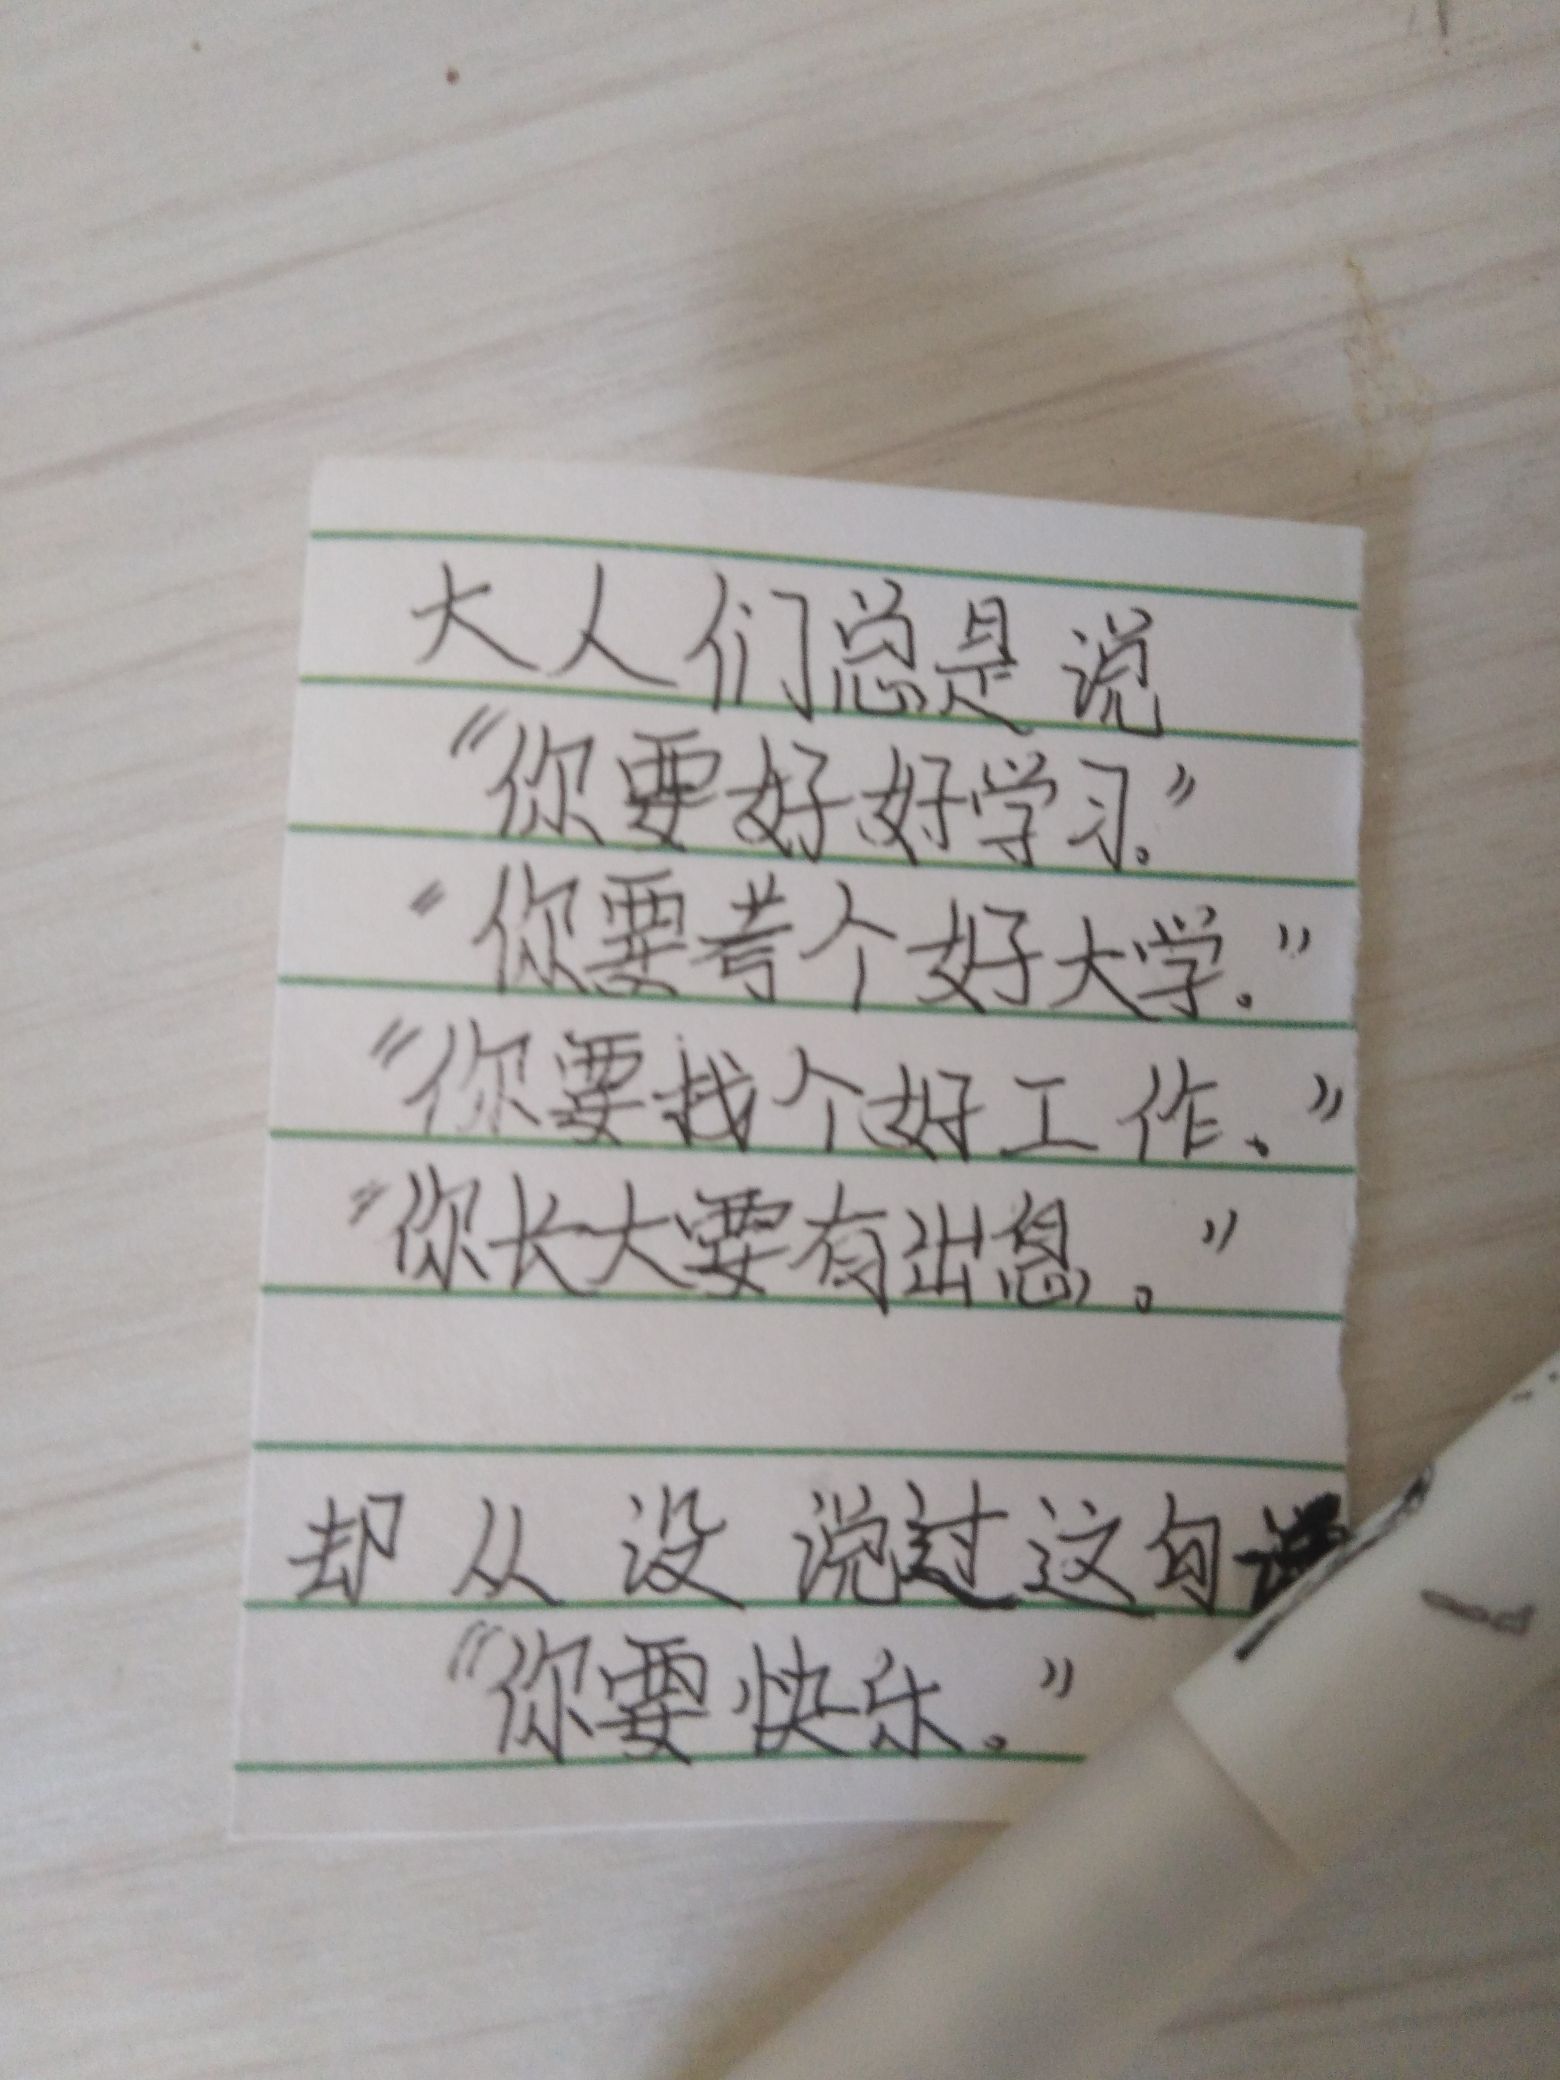 大人们总是说
“你要好好学习。”
“你要考个好大学。”
“你要找个好工作、”
“你长大要有出息。”
却从没说过这句
“你要快乐。”